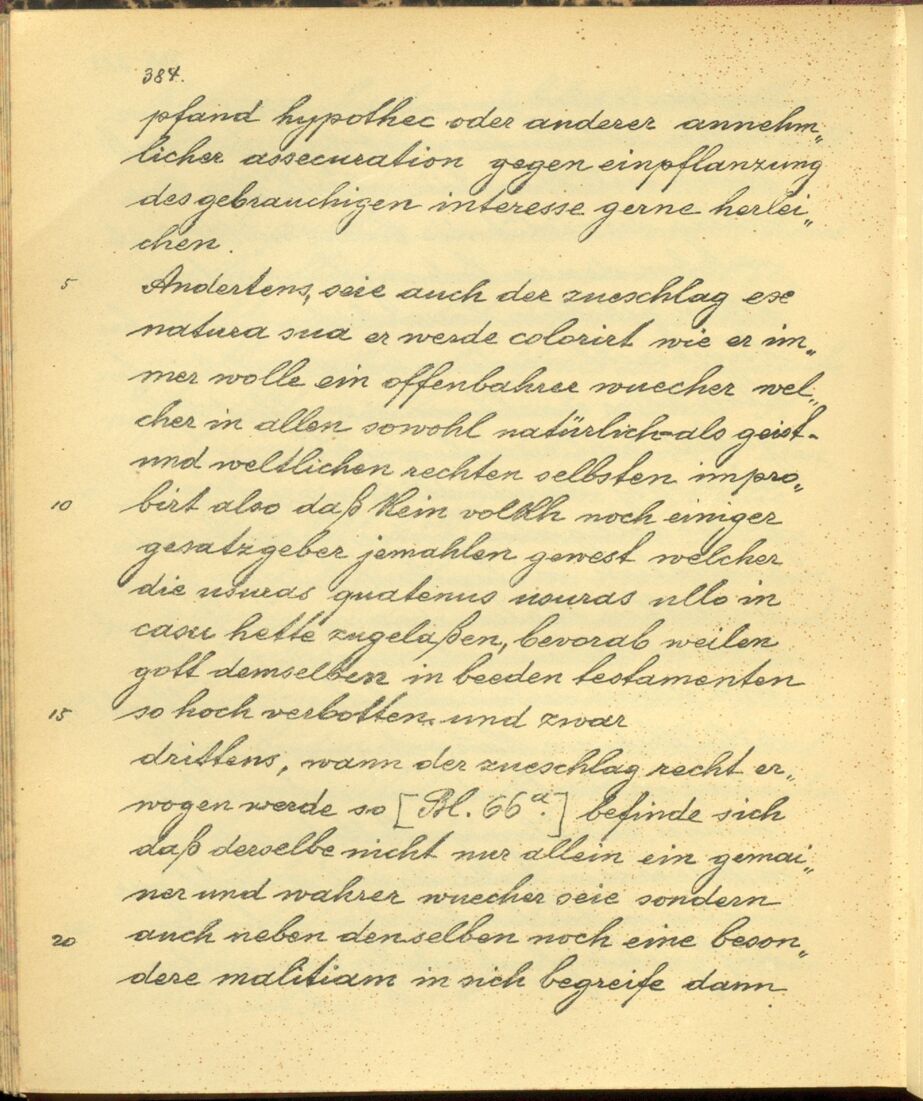 384.
pfand hypothec oder anderer annehm„
licher assecuration gegen einpflanzung
des gebrauchigen interesse gerne herlei„
chen.
5 Andertens, seie auch der zueschlag ex
natura sua er werde colorirt wie er im„
mer wolle ein offenbahrer wuecher wel„
cher in allen sowohl natürlich-als geist-
und weltlichen rechten selbsten impro„
10 birt also daß Kein volKh noch einiger
gesatzgeber jemahlen gewest welcher
die usuras quatenus usuras ullo in
casu hette zugelaßen, bevorab weilen
gott demselben in beeden testamenten
15 so hoch verbotten. und zwar
drittens, wann der zueschlag recht er„
wogen werde so [Bl. 66a.] befinde sich
daß derselbe nicht nur allein ein gemai„
ner und wahrer wuecher seie sondern
20 auch neben denselben noch eine beson„
dere malitiam in sich begreife dann